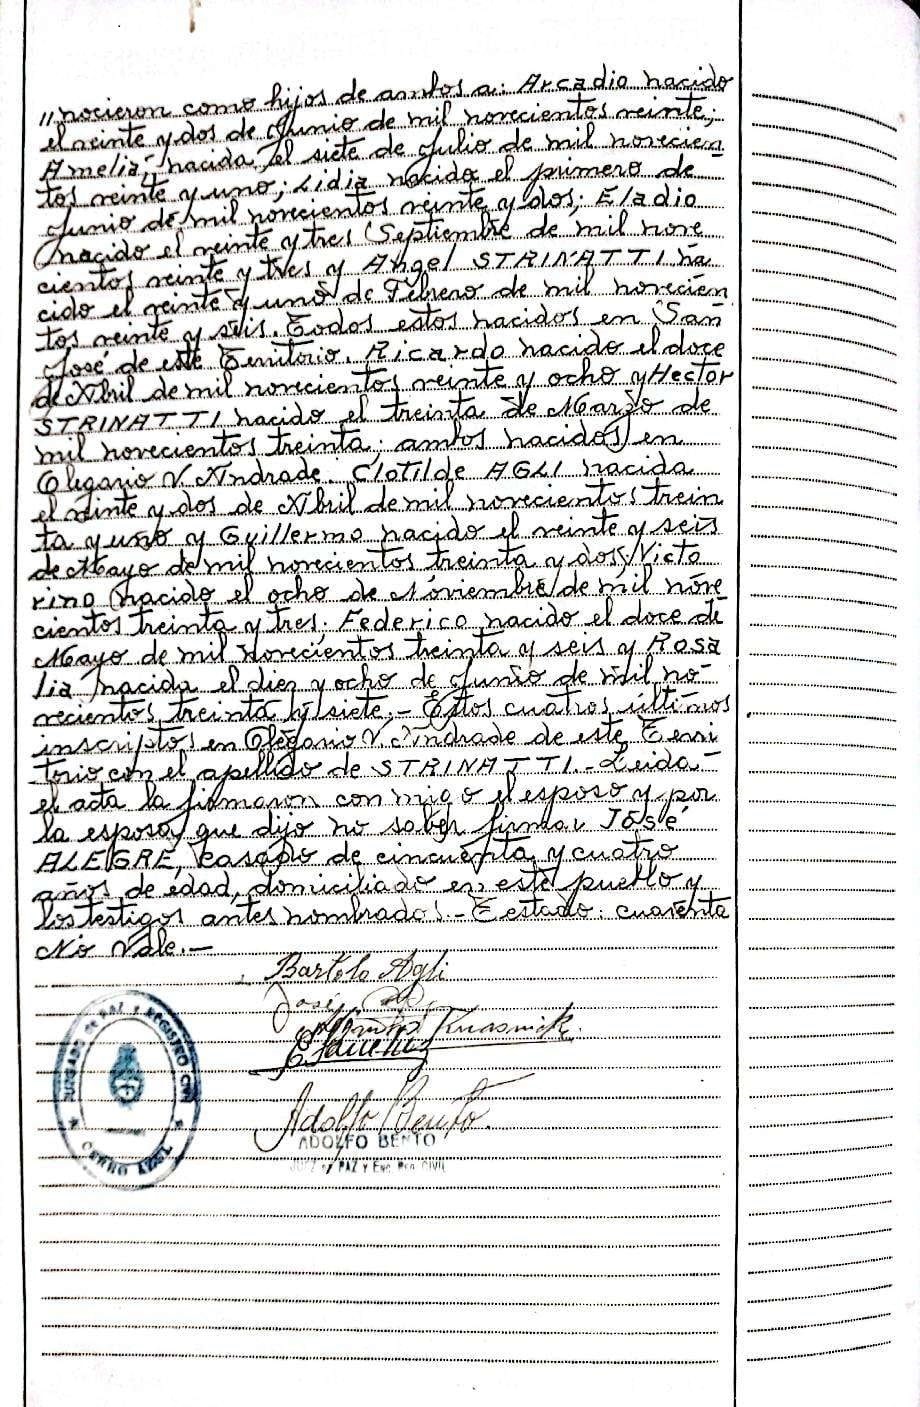 "nocieron como hijos de ambos a: Arcadio nacido
el veinte y dos de Junio de mil novecientos veinte;
Amelia, nacida el siete de Julio de mil novecien
tos veinte y uno; Lidia nacida el primero de
Junio de mil novecientos veinte y dos; Eladio
nacido el veinte y tres Septiembre de mil nove
cientos veinte y tres y Angel STRINATTI na
cido el veinte y uno de Febrero de mil novecien
tos veinte y seis. Todos estos nacidos en San
José de este Territorio. Ricardo nacido el doce
de Abril de mil novecientos veinte y ocho y Hector
STRINATTI nacido el treinta de Marzo de
mil novecientos treinta; ambos nacidos en
Olegario V. Andrade. Clotilde AGLI nacida
el veinte y dos de Abril de mil novecientos trein
ta y uno y Guillermo nacido el veinte y seis
de Mayo de mil novecientos treinta y dos; Victo
rino nacido el ocho de Noviembre de mil nove
cientos treinta y tres; Federico nacido el doce de
Mayo de mil novecientos treinta y seis y Rosa
lia nacida el diez y ocho de Junio de mil no-
vecientos treinta y siete.- Estos cuatros últimos
inscriptos en Olegario V. Andrade de este Terri
torio con el apellido de STRINATTI.- Leida
el acta la firmaron con migo el esposo y por
la esposa, que dijo no saber firmar José
ALEGRE, casado de cincuenta y cuatro
años de edad, domiciliado en este pueblo y
los testigos antes nombrados.- Testado: cuarenta
No Vale.-
Bartolo Agli
José
E Sanchez
JUZGADO DE PAZ Y REGISTRO CIVIL
CERRO AZUL
Adolfo Bento.
ADOLFO BENTO
JUEZ DE PAZ Y ENC. REG. CIVIL